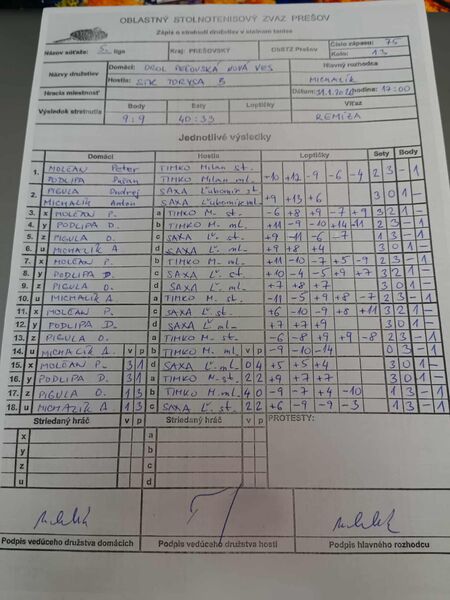 OBLASTNÝ STOLNOTENISOVÝ ZVÄZ PREŠOV
Zápis o stretnutí družstiev v stolnom tenise
Názov súťaže: 5. liga Kraj: PREŠOVSKÝ ObSTZ Prešov Číslo zápasu: 75
Kolo: 13
Názvy družstiev Domáci: OROL PEČOVSKÁ NOVÁ VES Hlavný rozhodca
Hostia: STK TORYSA 5 MICHALÍK
Hracia miestnosť Dátum: 31.1.2020 hodina: 17:00
Výsledok stretnutia Body Sety Loptičky Víťaz
9:9 40:33 REMÍZA
Jednotlivé výsledky
Domáci Hostia Loptičky Sety Body
1. MOLČAN Peter TIMKO Milan st.
PODLIPA Dušan TIMKO Milan ml. +10 +12 -9 -6 -4 2 3 - 1
2. PIGULA Ondrej SAXA Ľubomír st.
MICHALÍK Anton SAXA Ľubomír ml. +9 +13 +6 3 0 1 -
3. x MOLČAN P. a TIMKO M. st. -6 +8 +9 -7 +9 3 2 1 -
4. y PODLIPA D. b TIMKO M. ml. +11 -9 -10 +14 -11 2 3 - 1
5. z PIGULA O. c SAXA Ľ. st. +9 -11 -6 -7 1 3 - 1
6. u MICHALÍK A. d SAXA Ľ. ml. +9 +8 +4 3 0 1 -
7. x MOLČAN P. b TIMKO M. ml. +11 -10 -7 +5 -9 2 3 - 1
8. y PODLIPA D. c SAXA Ľ. st. +10 -4 -5 +9 +7 3 2 1 -
9. z PIGULA O. d SAXA Ľ. ml. +7 +8 +7 3 0 1 -
10. u MICHALÍK A. a TIMKO M. st. -11 -5 +9 +8 -7 2 3 - 1
11. x MOLČAN P. c SAXA Ľ. st. +6 -10 -9 +8 +11 3 2 1 -
12. y PODLIPA D. d SAXA Ľ. ml. +7 +7 +9 3 0 1 -
13. z PIGULA O. a TIMKO M. st. -6 -8 +9 +9 -8 2 3 - 1
14. u MICHALÍK A. v p b TIMKO M. ml. v p -9 -10 -14 0 3 - 1
15. x MOLČAN P. 3 1 d SAXA Ľ. ml. 0 4 +5 +5 +4 3 0 1 -
16. y PODLIPA D. 3 1 a TIMKO M. st. 2 2 +9 +7 +7 3 0 1 -
17. z PIGULA O. 1 3 b TIMKO M. ml. 4 0 -9 -7 +4 -10 1 3 - 1
18. u MICHALÍK A 1 3 c SAXA Ľ. st. 2 2 +6 -9 -9 -3 1 3 - 1
Striedaný hráč v p Striedaný hráč v p PROTESTY:
x a
y b
z c
u d
Podpis vedúceho družstva domácich Podpis vedúceho družstva hostí Podpis hlavného rozhodcu